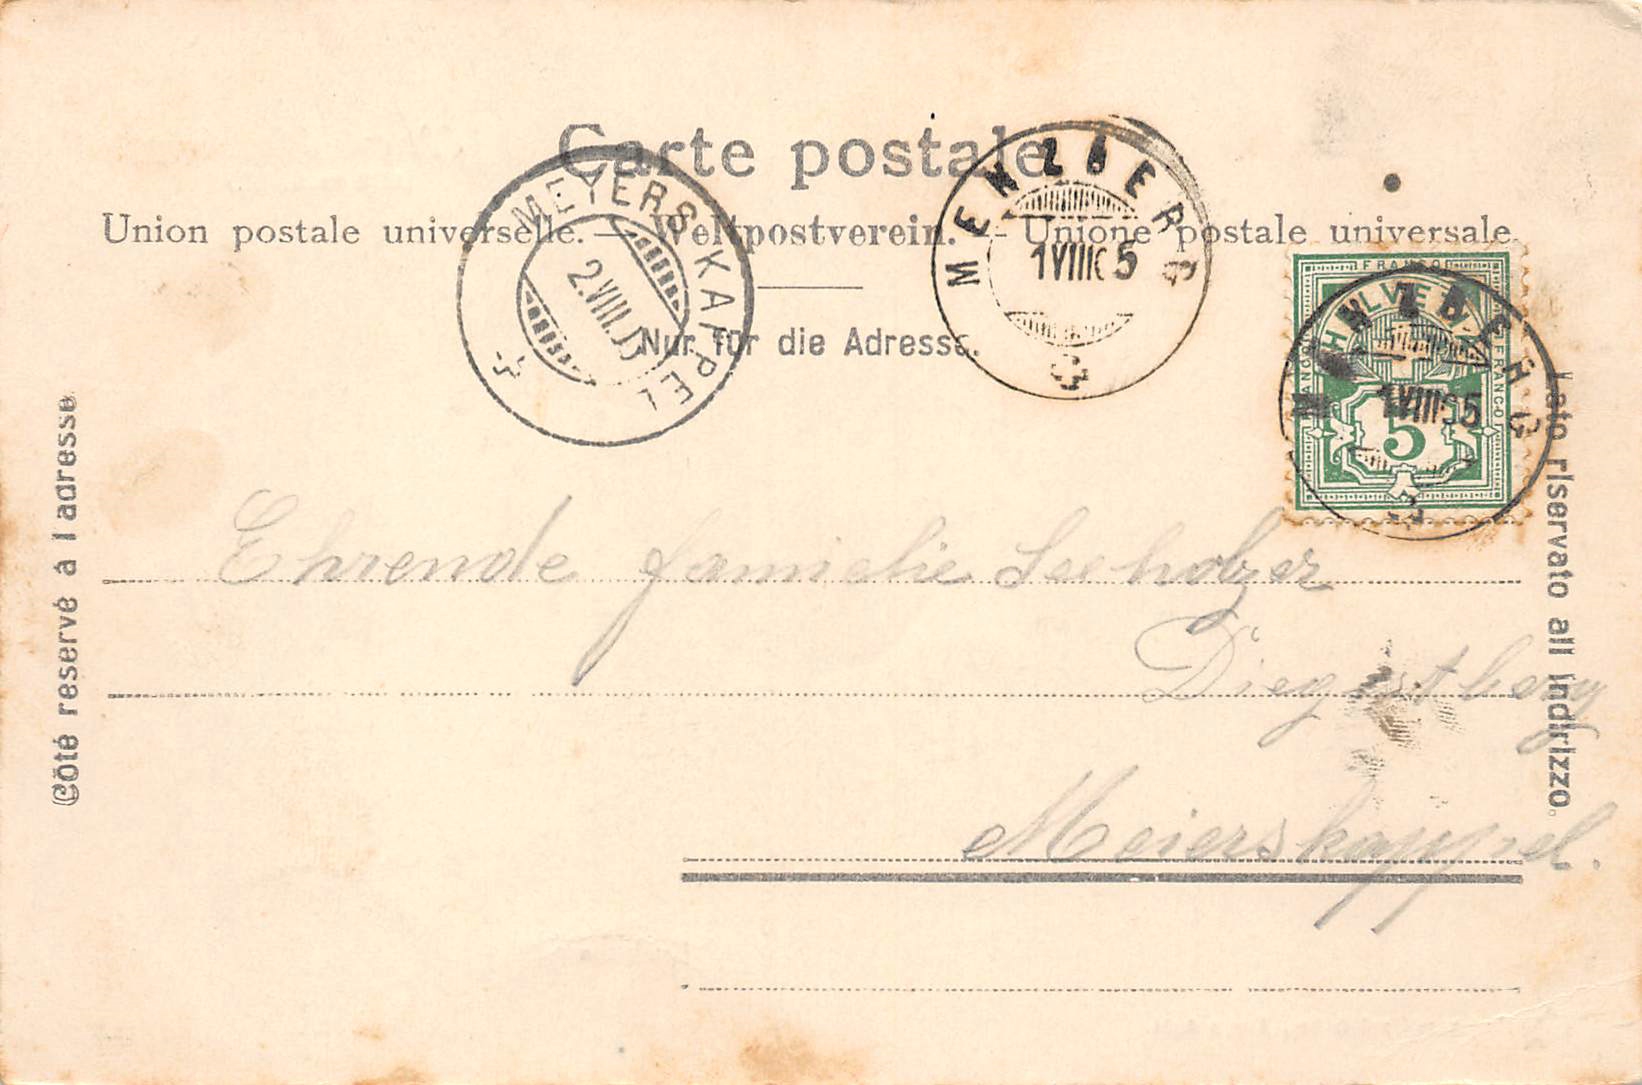 Carte postale
Union postale universelle. — Weltpostverein. — Unione postale universale
Nur für die Adresse.
MEYERSKAPPEL
2.VIII.05
MENZBERG
1 VIII 05
FRANCO
HELVETIA
FRANCO
FRANCO
5
MENZBERG
1 VIII 05
Côté reservé à l'adresse
Lato riservato all indirizzo.
Ehrende familie Seeholzer
Meierskappel.